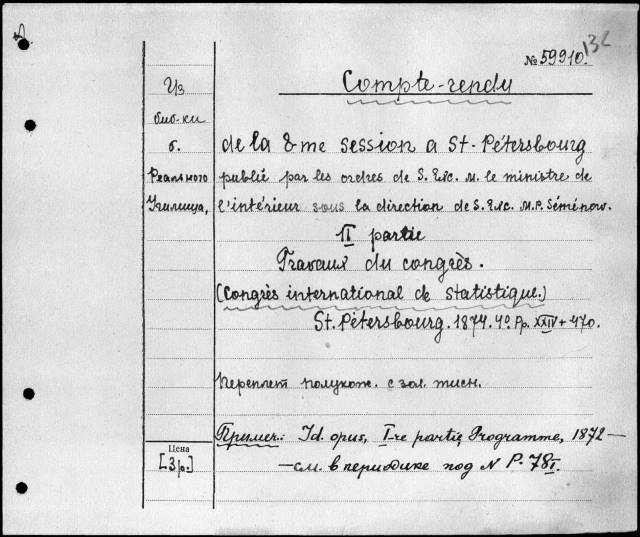 132
№ 59910.
Compte-rendu
Из
биб-ки
б.
Реального
Училища,
de la 8me session a St-Pétersbourg
publié par les ordres de S. Exc. M. le ministre de
l'intérieur sous la direction de S. Exc. M.P. Séménow.
II partie
Travaux du congrès.
(Congrès international de statistique.)
St. Pétersbourg. 1874. 4º. Pp. XXIV + 470.
Переплет полукож. с зол. тисн.
Примеч.: Id. opus, I-re partie, Programme, 1872 —
— см. в периодике под N P. 78I.
Цена
[3р.]